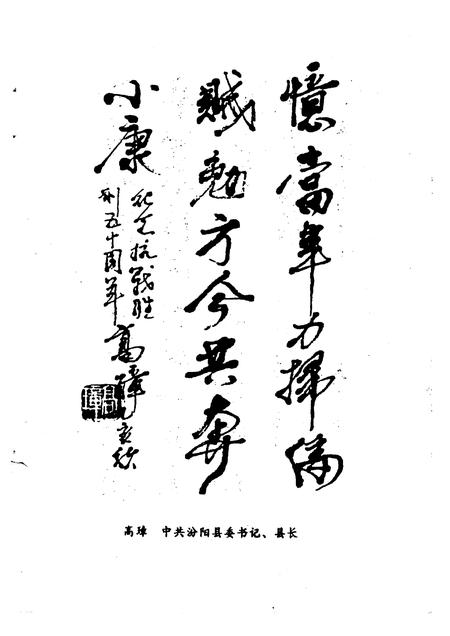 憶當年力掃倭
賊勉方今共奔
小康
纪念抗戰胜
利五十周年
高璋乙亥秋
高璋　中共汾阳县委书记、县长